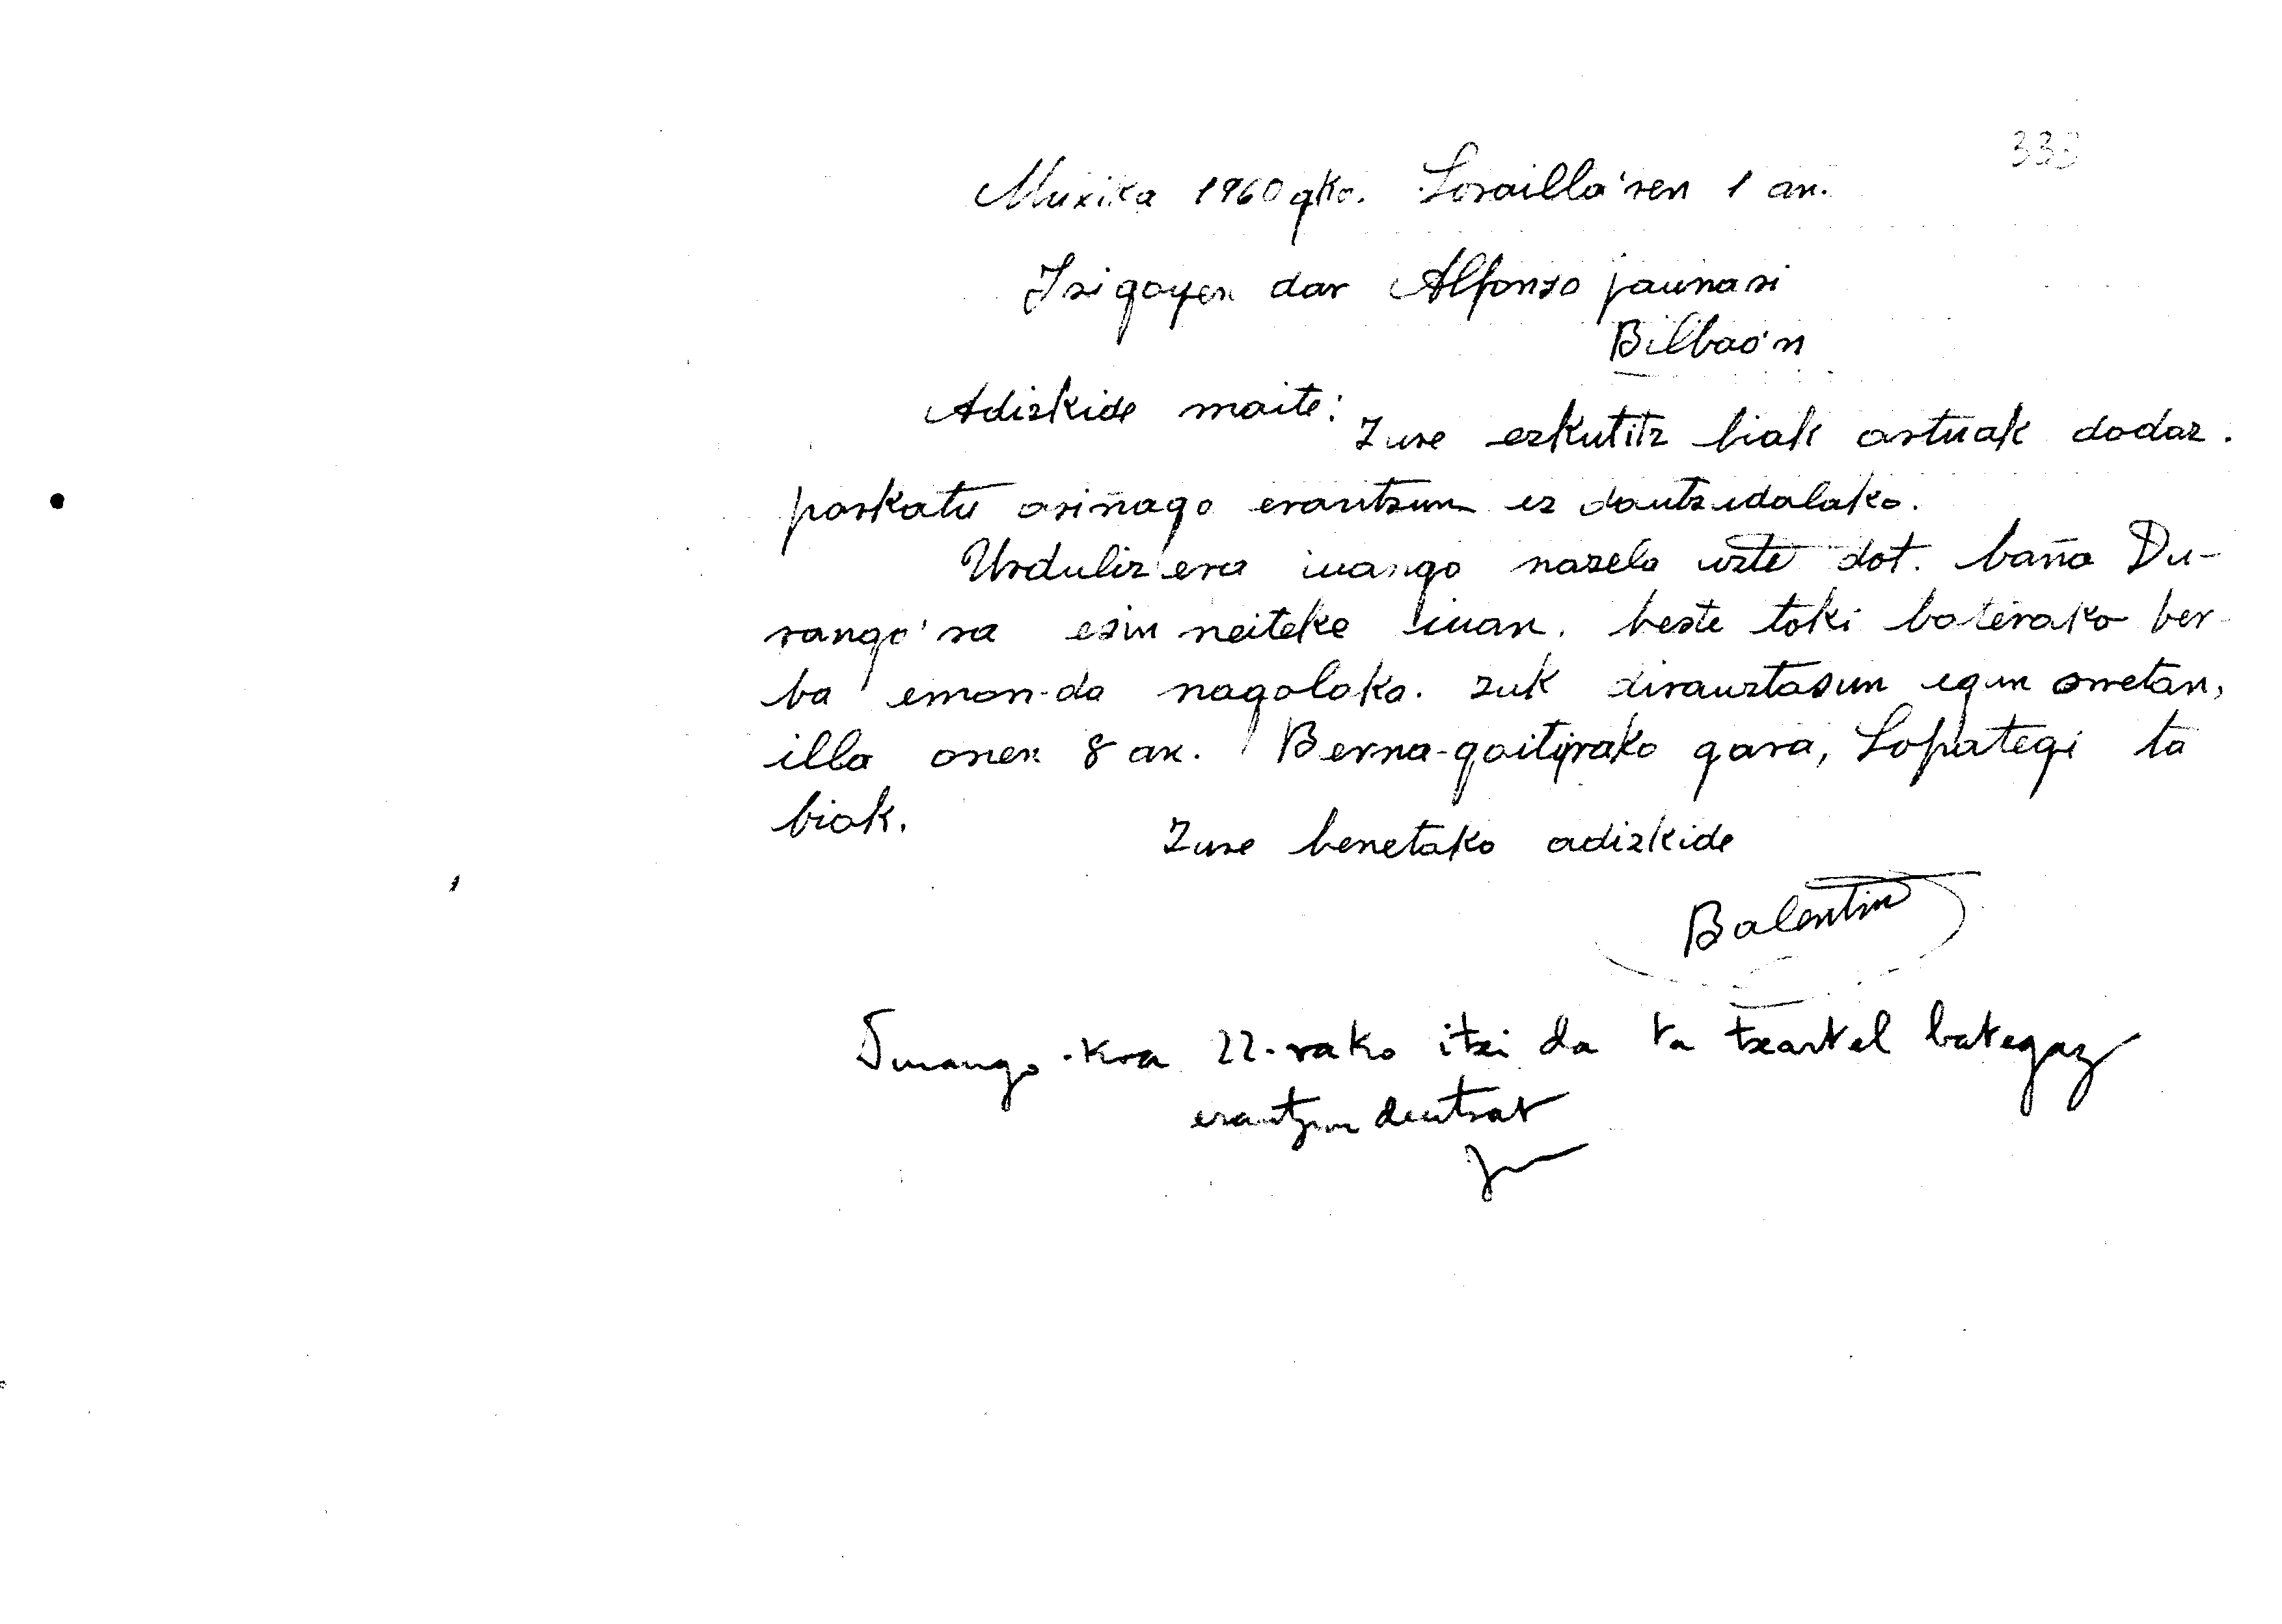 333
Muxika 1960 gko. Lorailla'ren 1 an.
Irigoyen dar Alfonso jaunari
Bilbao'n
Adizkide maite:
Zure ezkutitz biak artuak dodaz.
parkatu ariñago erantzun ez dautzudalako.
Urduliz'era iuango nazela uste dot. baña Du-
rango'ra ezin neiteke iuan. beste toki baterako ber-
ba emon-da nagolako. zuk dirauztasun egun orretan,
illa onen 8 an. Berna-goitirako gara, Lopategi ta
biak.
Zure benetako adizkide
Balentin
Durango-koa 22-rako itzi da ta txartel bategaz
erantzun deutsat